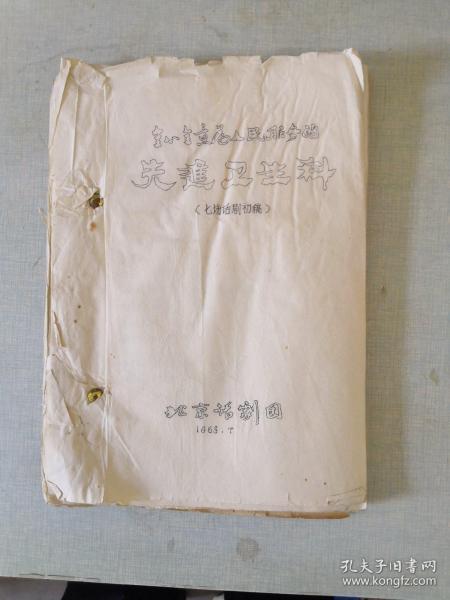 全心全意为人民服务的
先進卫生科
(七场话剧初稿)
北京话剧团
1968.7
孔夫子旧书网
www.kongfz.com